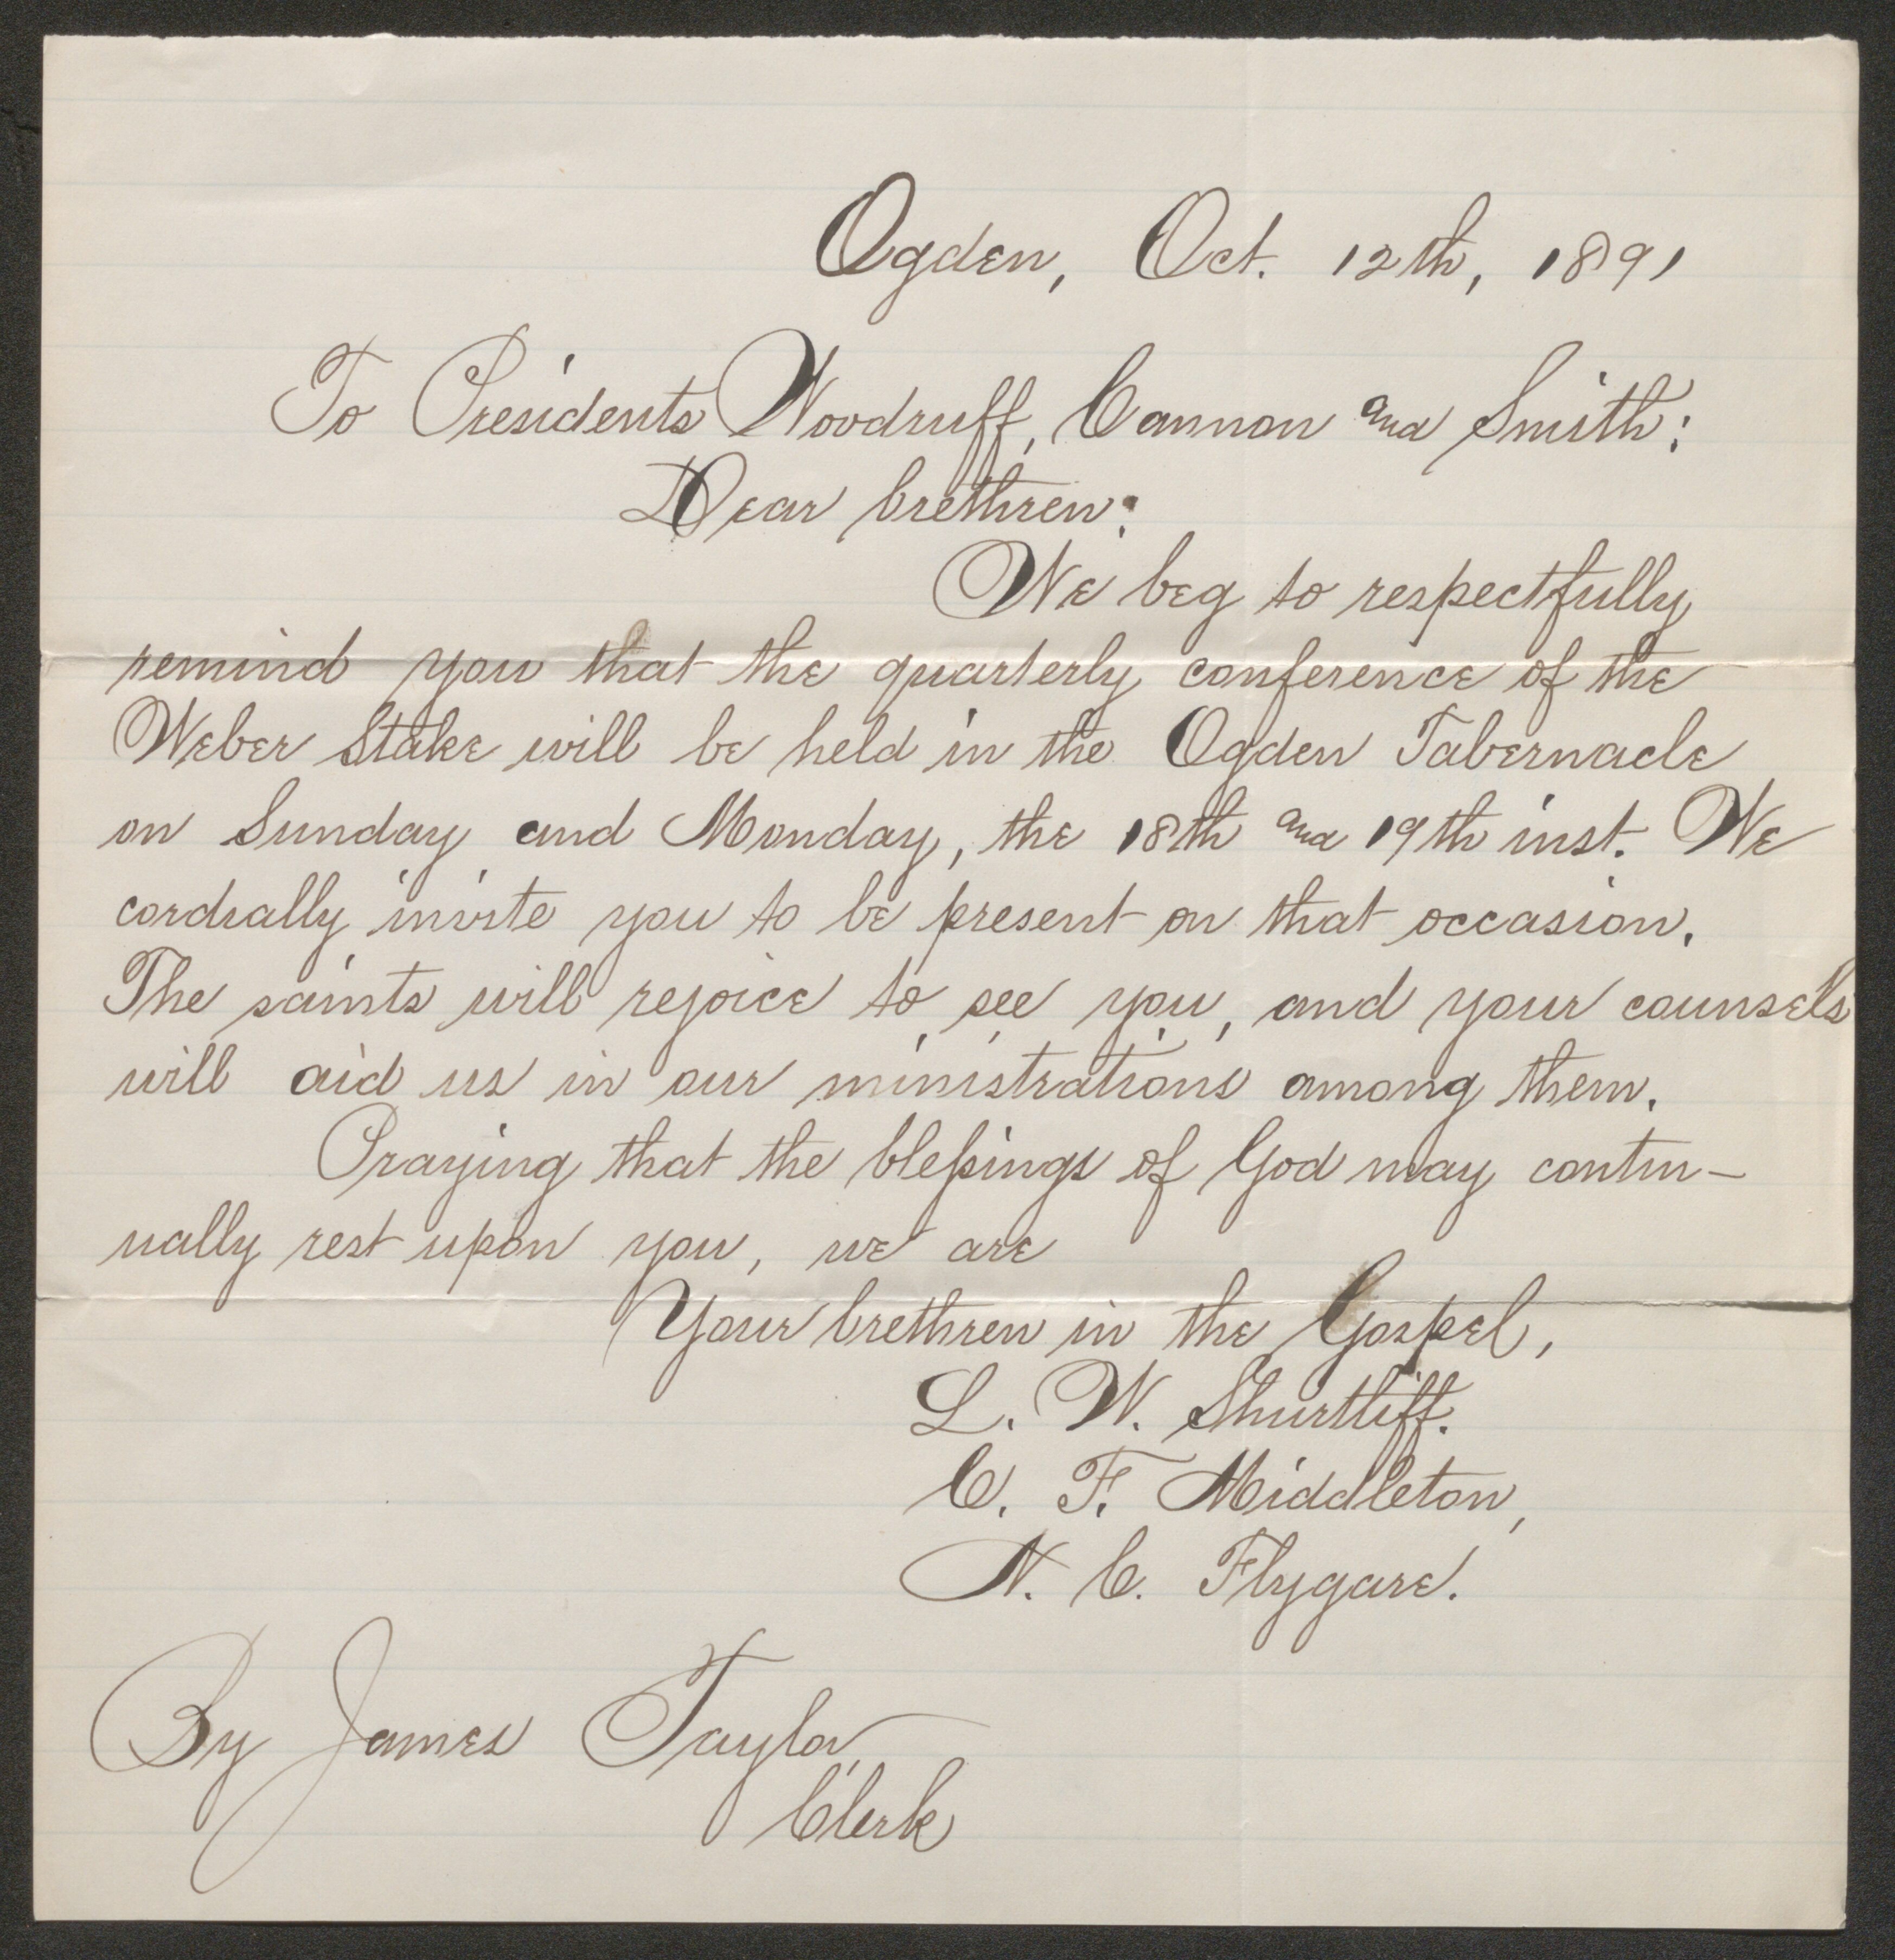 Ogden, Oct. 12th, 1891
To Presidents Woodruff, Cannon and Smith:
Dear brethren:
We beg to respectfully
remind you that the quarterly conference of the
Weber Stake will be held in the Ogden Tabernacle
on Sunday and Monday, the 18th and 19th inst. We
cordially invite you to be present on that occasion.
The saints will rejoice to see you, and your counsels
will aid us in our ministrations among them.
Praying that the blessings of God may contin-
ually rest upon you, we are
Your brethren in the Gospel,
L. W. Shurtliff.
C. F. Middleton,
N. C. Flygare.
By James Taylor,
Clerk